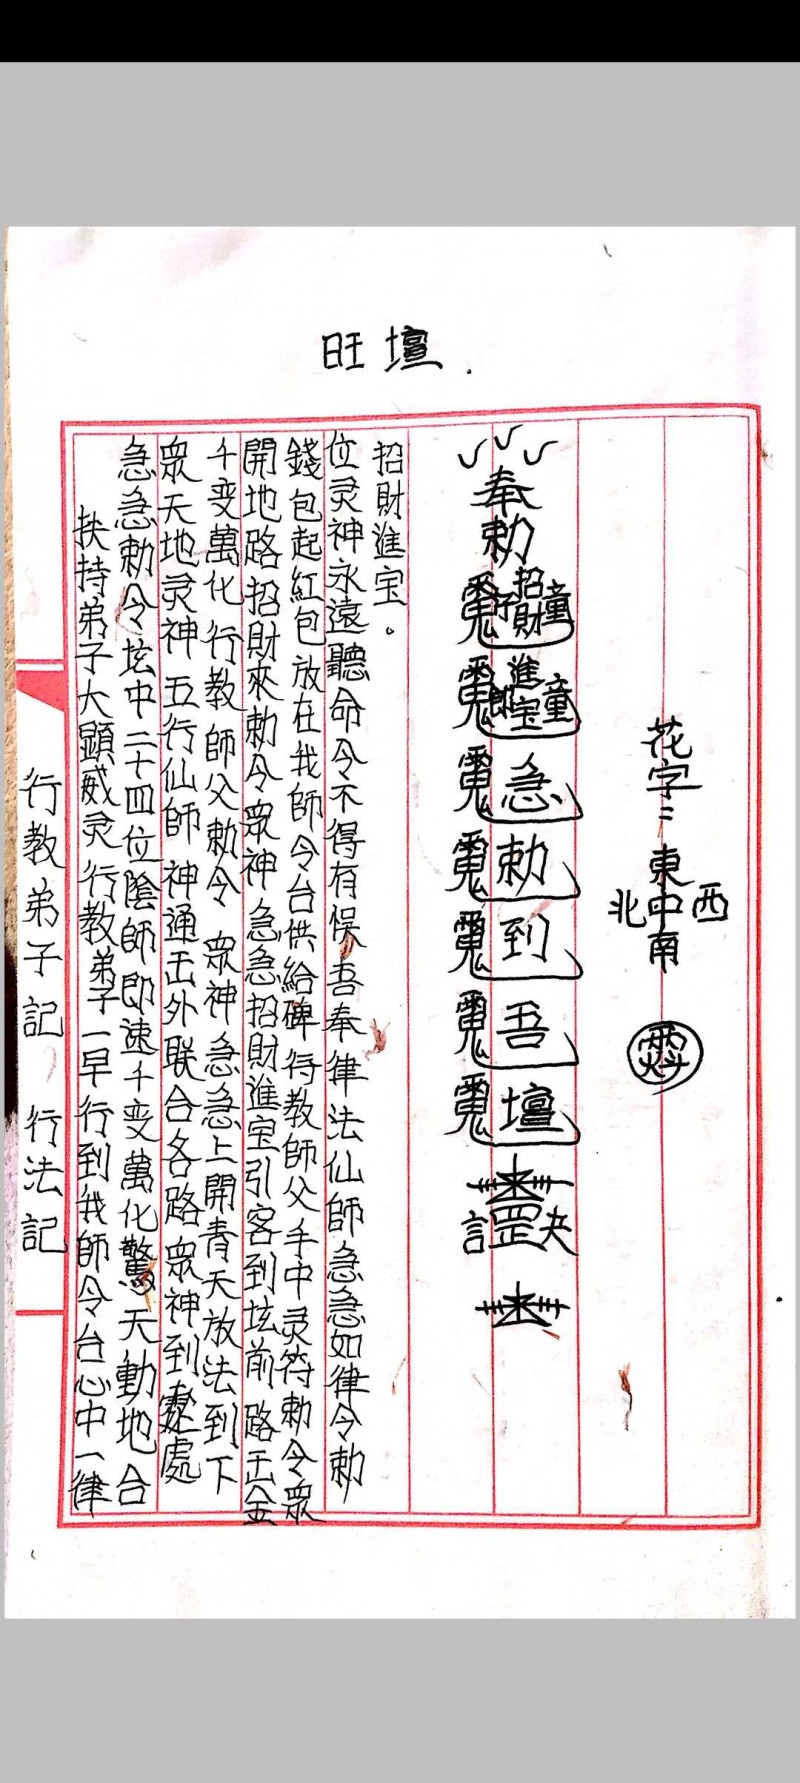 旺壇
行教弟子記 行法記
扶持弟子大顯威灵行教弟子一早行到我師令台心中一律
急急勅令坛中二十四位陰師即速千变萬化驚天動地合
眾天地灵神五行仙師神通出外联合各路眾神到處
千变萬化行教師父勅令眾神急急上開青天放法到下
開地路招財來勅令眾神急急招財進宝引客到坛前路出金
錢包起紅包放在我師令台供給碑待教師父手中灵符勅令眾
位灵神永遠聽命令不得有悮吾奉律法仙師急急如律令勅
招財進宝。
奉勅
招財童子
進宝童郎
急
勅
到
吾
壇
罡
花字:
東
北中西
南